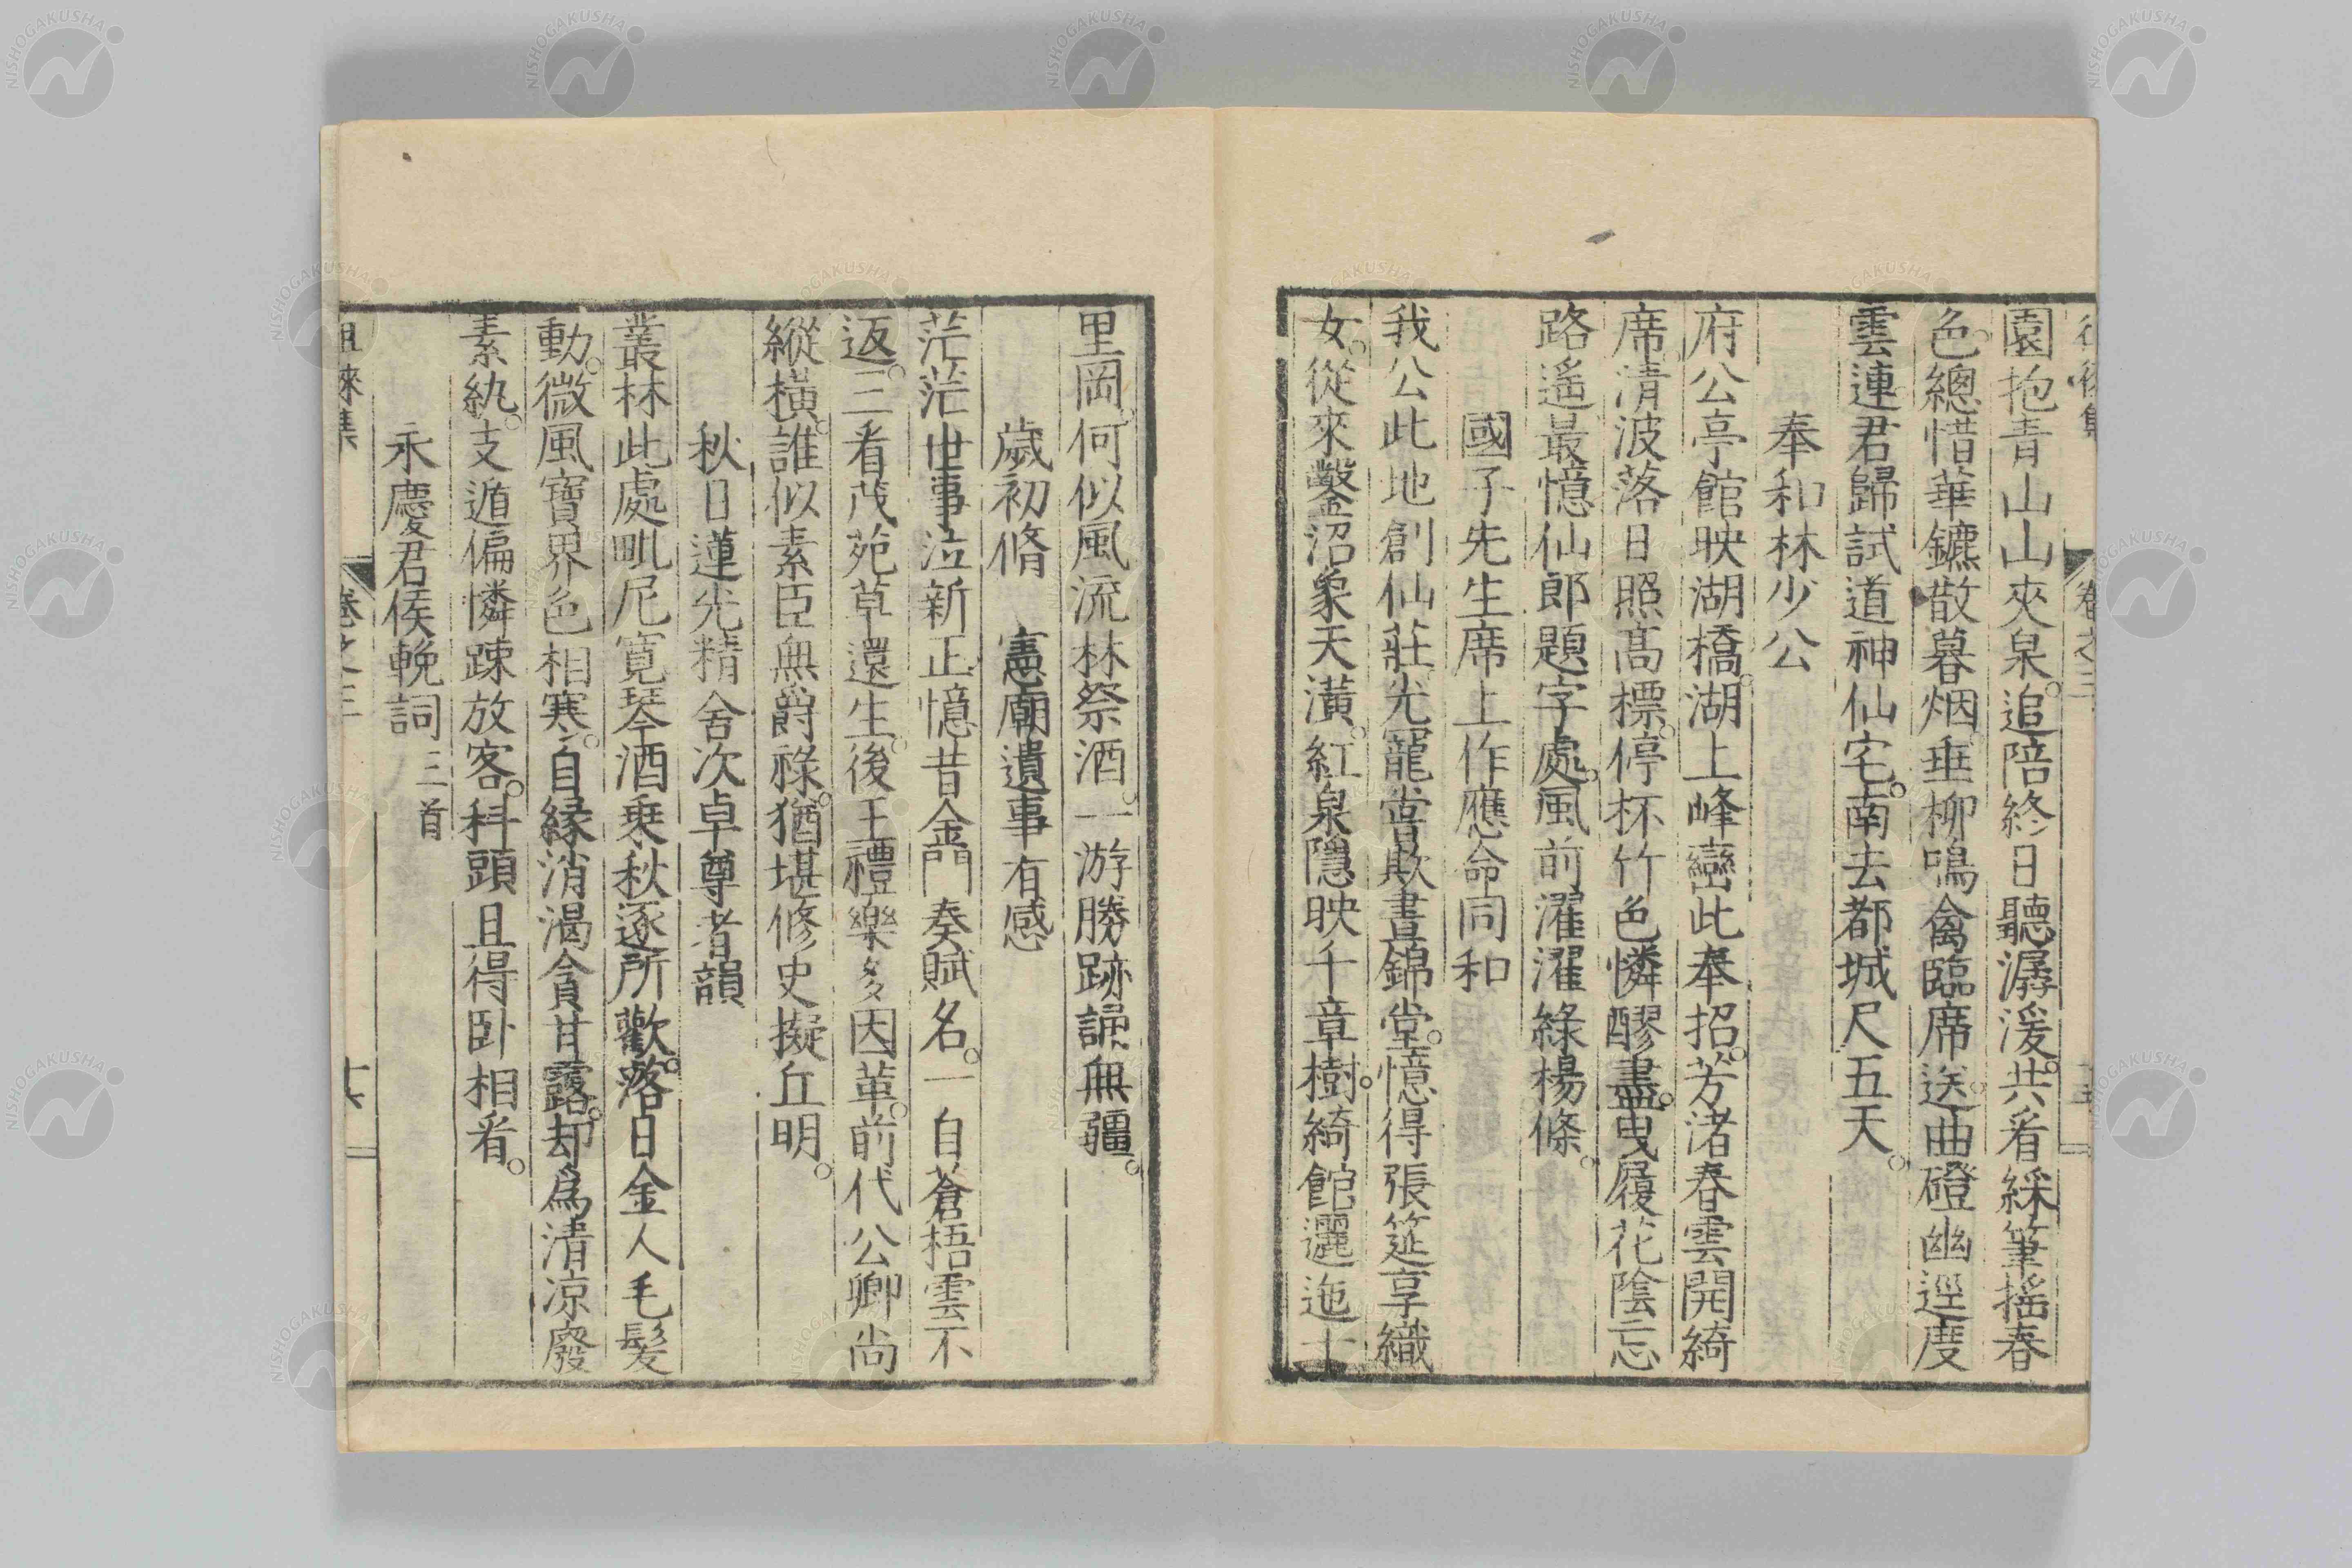 園抱青山山夾泉。追陪終日聽潺湲。共看綵筆搖春
色。總惜華鑣散暮烟。垂柳鳴禽臨席送。曲磴幽逕度
雲連。君歸試道神仙宅。南去都城尺五天。
奉和林少公
府公亭館映湖橋。湖上峰巒此奉招。芳渚春雲開綺
席。清波落日照髙標。停杯竹色憐醪盡。曳履花陰忘
路遙。最憶仙郎題字處。風前濯濯綠楊條。
國子先生席上作應命同和
我公此地創仙莊。光寵當欺晝錦堂。憶得張筵享織
女。從來鑿沼象天潢。紅泉隱映千章樹。綺館邐迤十
里岡。何似風流林祭酒。一游勝跡歸無疆。
歲初脩 憲廟遺事有感
茫茫世事泣新正。憶昔金門奏賦名。一自蒼梧雲不
返。三看茂苑草還生。後王禮樂多因革。前代公卿尚
縱橫。誰似素臣無爵祿。猶堪修史擬丘明。
秋日蓮光精舍次卓尊者韻
叢林此處毗尼寬。琴酒乗秋逐所歡。落日金人毛髪
動。微風寶界色相寒。自縁消渇貪甘露。却爲清凉廢
素紈。支遁偏憐踈放客。科頭且得卧相看。
永慶君侯輓詞 三首
徂徠集
卷之三
十六
NISHOGAKUSHA